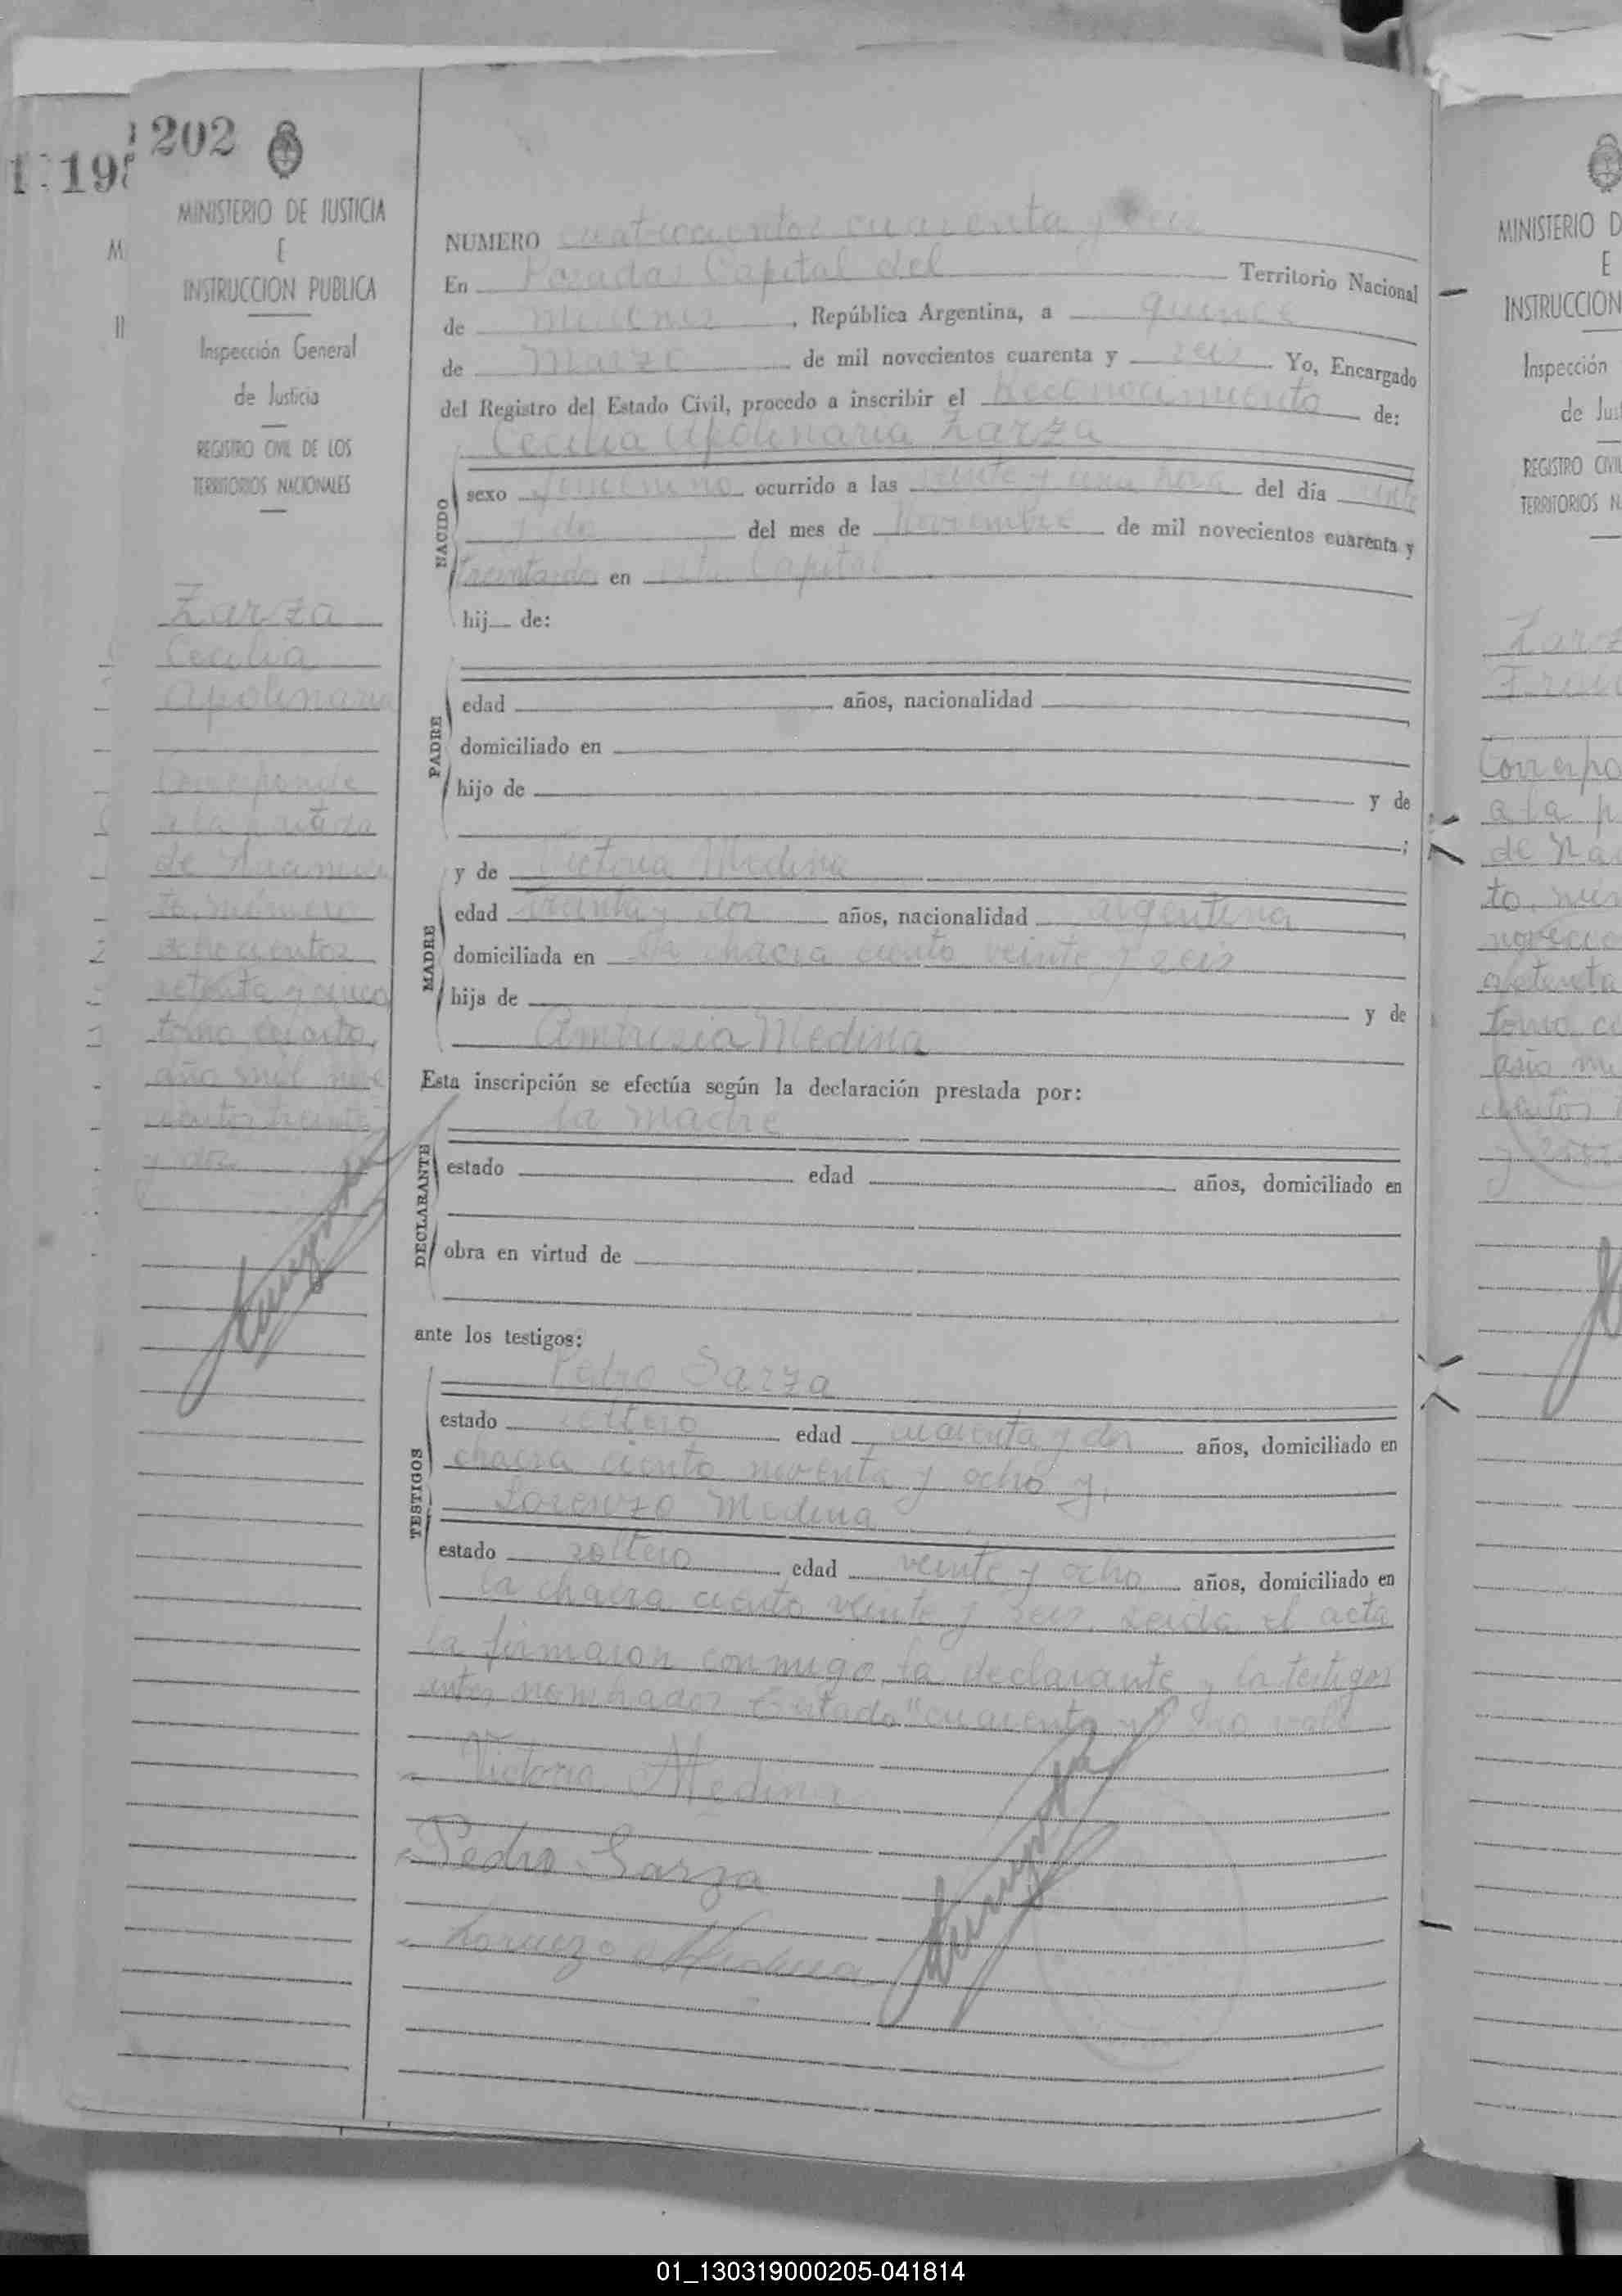 202
1 198
MINISTERIO DE JUSTICIA
E
INSTRUCCION PUBLICA
Inspección General
de Justicia
REGISTRO CIVIL DE LOS
TERRITORIOS NACIONALES
Zarza
Cecilia
Apolinaria
Corresponde
a la partida
de Nacimien
to, número
ochocientos
setenta y cinco
tomo cuarto,
año mil nove
cientos treinta
y dos
NUMERO cuatrocientos cuarenta y seis
En Posadas Capital del Territorio Nacional
de Misiones, República Argentina, a quince
de Marzo de mil novecientos cuarenta y seis Yo, Encargado
del Registro del Estado Civil, procedo a inscribir el Reconocimiento de:
Cecilia Apolinaria Zarza
NACIDO
sexo femenino ocurrido a las veinte y una hora del día veinte
y dos del mes de Noviembre de mil novecientos cuarenta y
treinta dos en esta Capital
hij de:
PADRE
edad años, nacionalidad
domiciliado en
hijo de y de
;
MADRE
y de Victoria Medina
edad treinta y dos años, nacionalidad argentina
domiciliada en la chacra ciento veinte y seis
hija de y de
Ambrosia Medina
Esta inscripción se efectúa según la declaración prestada por:
la madre
DECLARANTE
estado edad años, domiciliado en
obra en virtud de
ante los testigos:
TESTIGOS
Pedro Sarza
estado soltero edad cuarenta y dos años, domiciliado en
chacra ciento noventa y ocho y,
Lorenzo Medina
estado soltero edad veinte y ocho años, domiciliado en
la chacra ciento veinte y seis. Leida el acta
la firmaron conmigo la declarante y los testigos
antes nombrados. Testado "cuarenta y" no vale
Victoria Medina
Pedro Sarza
Lorenzo Medina
MINISTERIO D
E
INSTRUCCION
Inspección
de Jus
REGISTRO CIVIL
TERRITORIOS N
Zarz
Correspo
a la p
de Na
to, núm
novecie
setenta
tomo cu
año mi
cientos
01_130319000205-041814